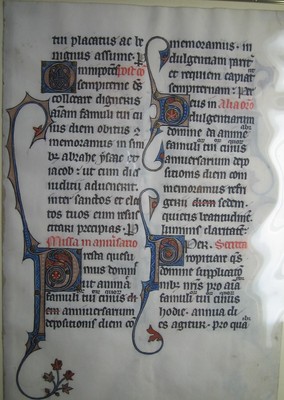 tin placatus ac be
nignus assume. post co
Omnipotens
sempiterne ds
collocare digneris
aiam famuli tui cui
ius diem obitus
memoramus in sinu
abrahe ysaac et
iacob: ut cum dies
iudicii advenerit.
inter sanctos et elec
tos tuos eum resus
citari precipias. P
Missa in anniversario
Presta quesu
mus domine
ut anima
famuli tui cuius di
em anniversarium
depositionis diem co
memoramus. in
dulgentiam parit
et requiem capiat
sempiternam. P
tus in Alia oro
Indulgentiarum
domine da anime
famuli tui cuius
anniversarium dep
ositionis diem com
memoramus refri
gerii sedem.
quietis beatitudinem
luminis claritatem.
Per. Secreta
Propitiare qs
domine supplicatio
nibus nris pro aia
famuli tui cuius
hodie annua di
es agitur. pro qua